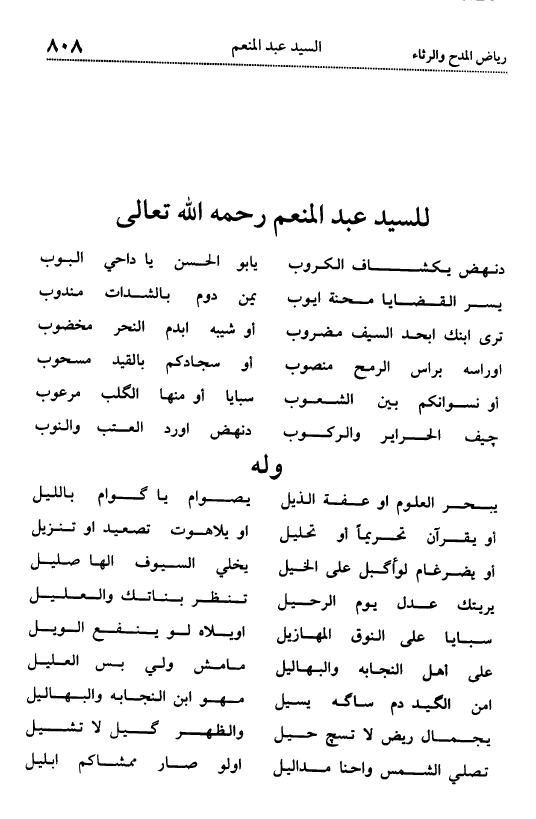 رياض المدح والرثاء السيد عبد المنعم ٨٠٨
للسيد عبد المنعم رحمه الله تعالى
دنهض يكشاف الكروب يابو الحسن يا داحي البوب
يسر القضايا محنة ايوب يمن دوم بالشدات مندوب
ترى ابنك ابحد السيف مضروب أو شيبه ابدم النحر مخضوب
اوراسه براس الرمح منصوب أو سجادكم بالقيد مسحوب
أو نسوانكم بين الشعوب سبايا أو منها الگلب مرعوب
چيف الحراير والركوب دنهض اورد العتب والنوب
وله
يبحر العلوم او عفة الذيل يصوام يا گوام بالليل
أو يقرآن تحريماً أو تحليل او يلاهوت تصعيد او تنزيل
أو يضرغام لوأگبل على الخيل يخلي السيوف الها صليل
يريتك عدل يوم الرحيل تنظر بناتك والعليل
سبايا على النوق المهازيل اويلاه لو ينفع الويل
على أهل النجابه والبهاليل مامش ولي بس العليل
امن الگيد دم ساگه يسيل مهو ابن النجابه والبهاليل
يجمال ريض لا تسچ حيل والظهر گيل لا تشيل
تصلي الشمس واحنا مداليل اولو صار ممشاكم ابليل